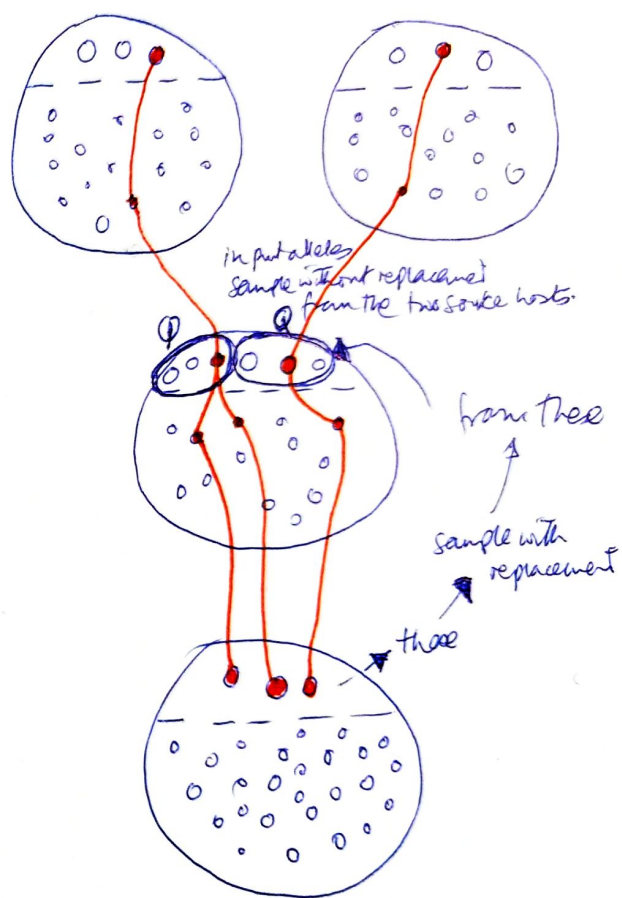 input alleles
sample without replacement
from the two source hosts.
from these
sample with
replacement
these